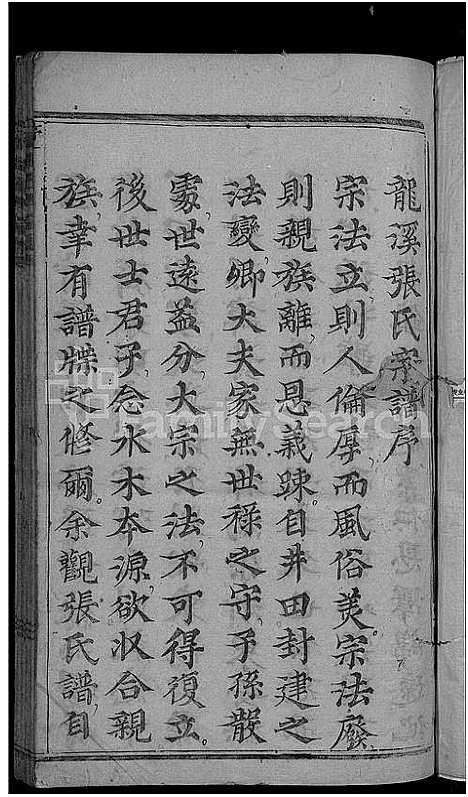 龍溪張氏宗譜序
宗法立則人倫厚而風俗美宗法廢
則親族離而恩義踈自井田封建之
法變卿大夫家無世祿之守子孫散
處世遠益分大宗之法不可得復立
後世士君子念水木夲源欲収合親
族聿有譜牒之修爾余觀張氏譜自
FamilySearch